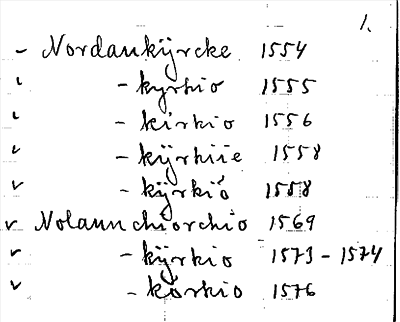 1.
- Nordankÿrcke 1554
" - kyrkio 1555
" - kirkio 1556
v - kÿrkiie 1558
v - kÿrkiö 1558
v Nolaunchiorchio 1569
v - kÿrkio 1573 - 1574
v - körkio 1576